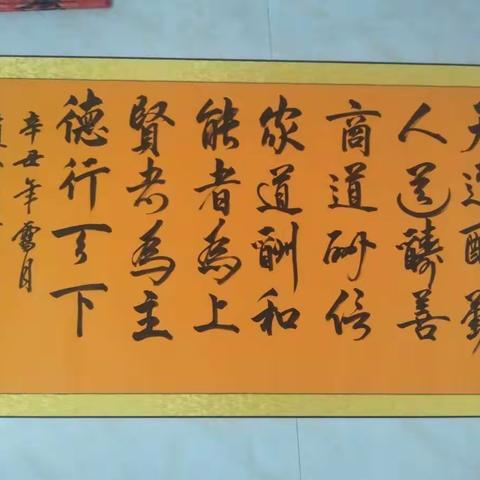 天道酬勤
人道酬善
商道酬信
家道酬和
能者為上
賢者為主
德行天下
辛丑年雪月